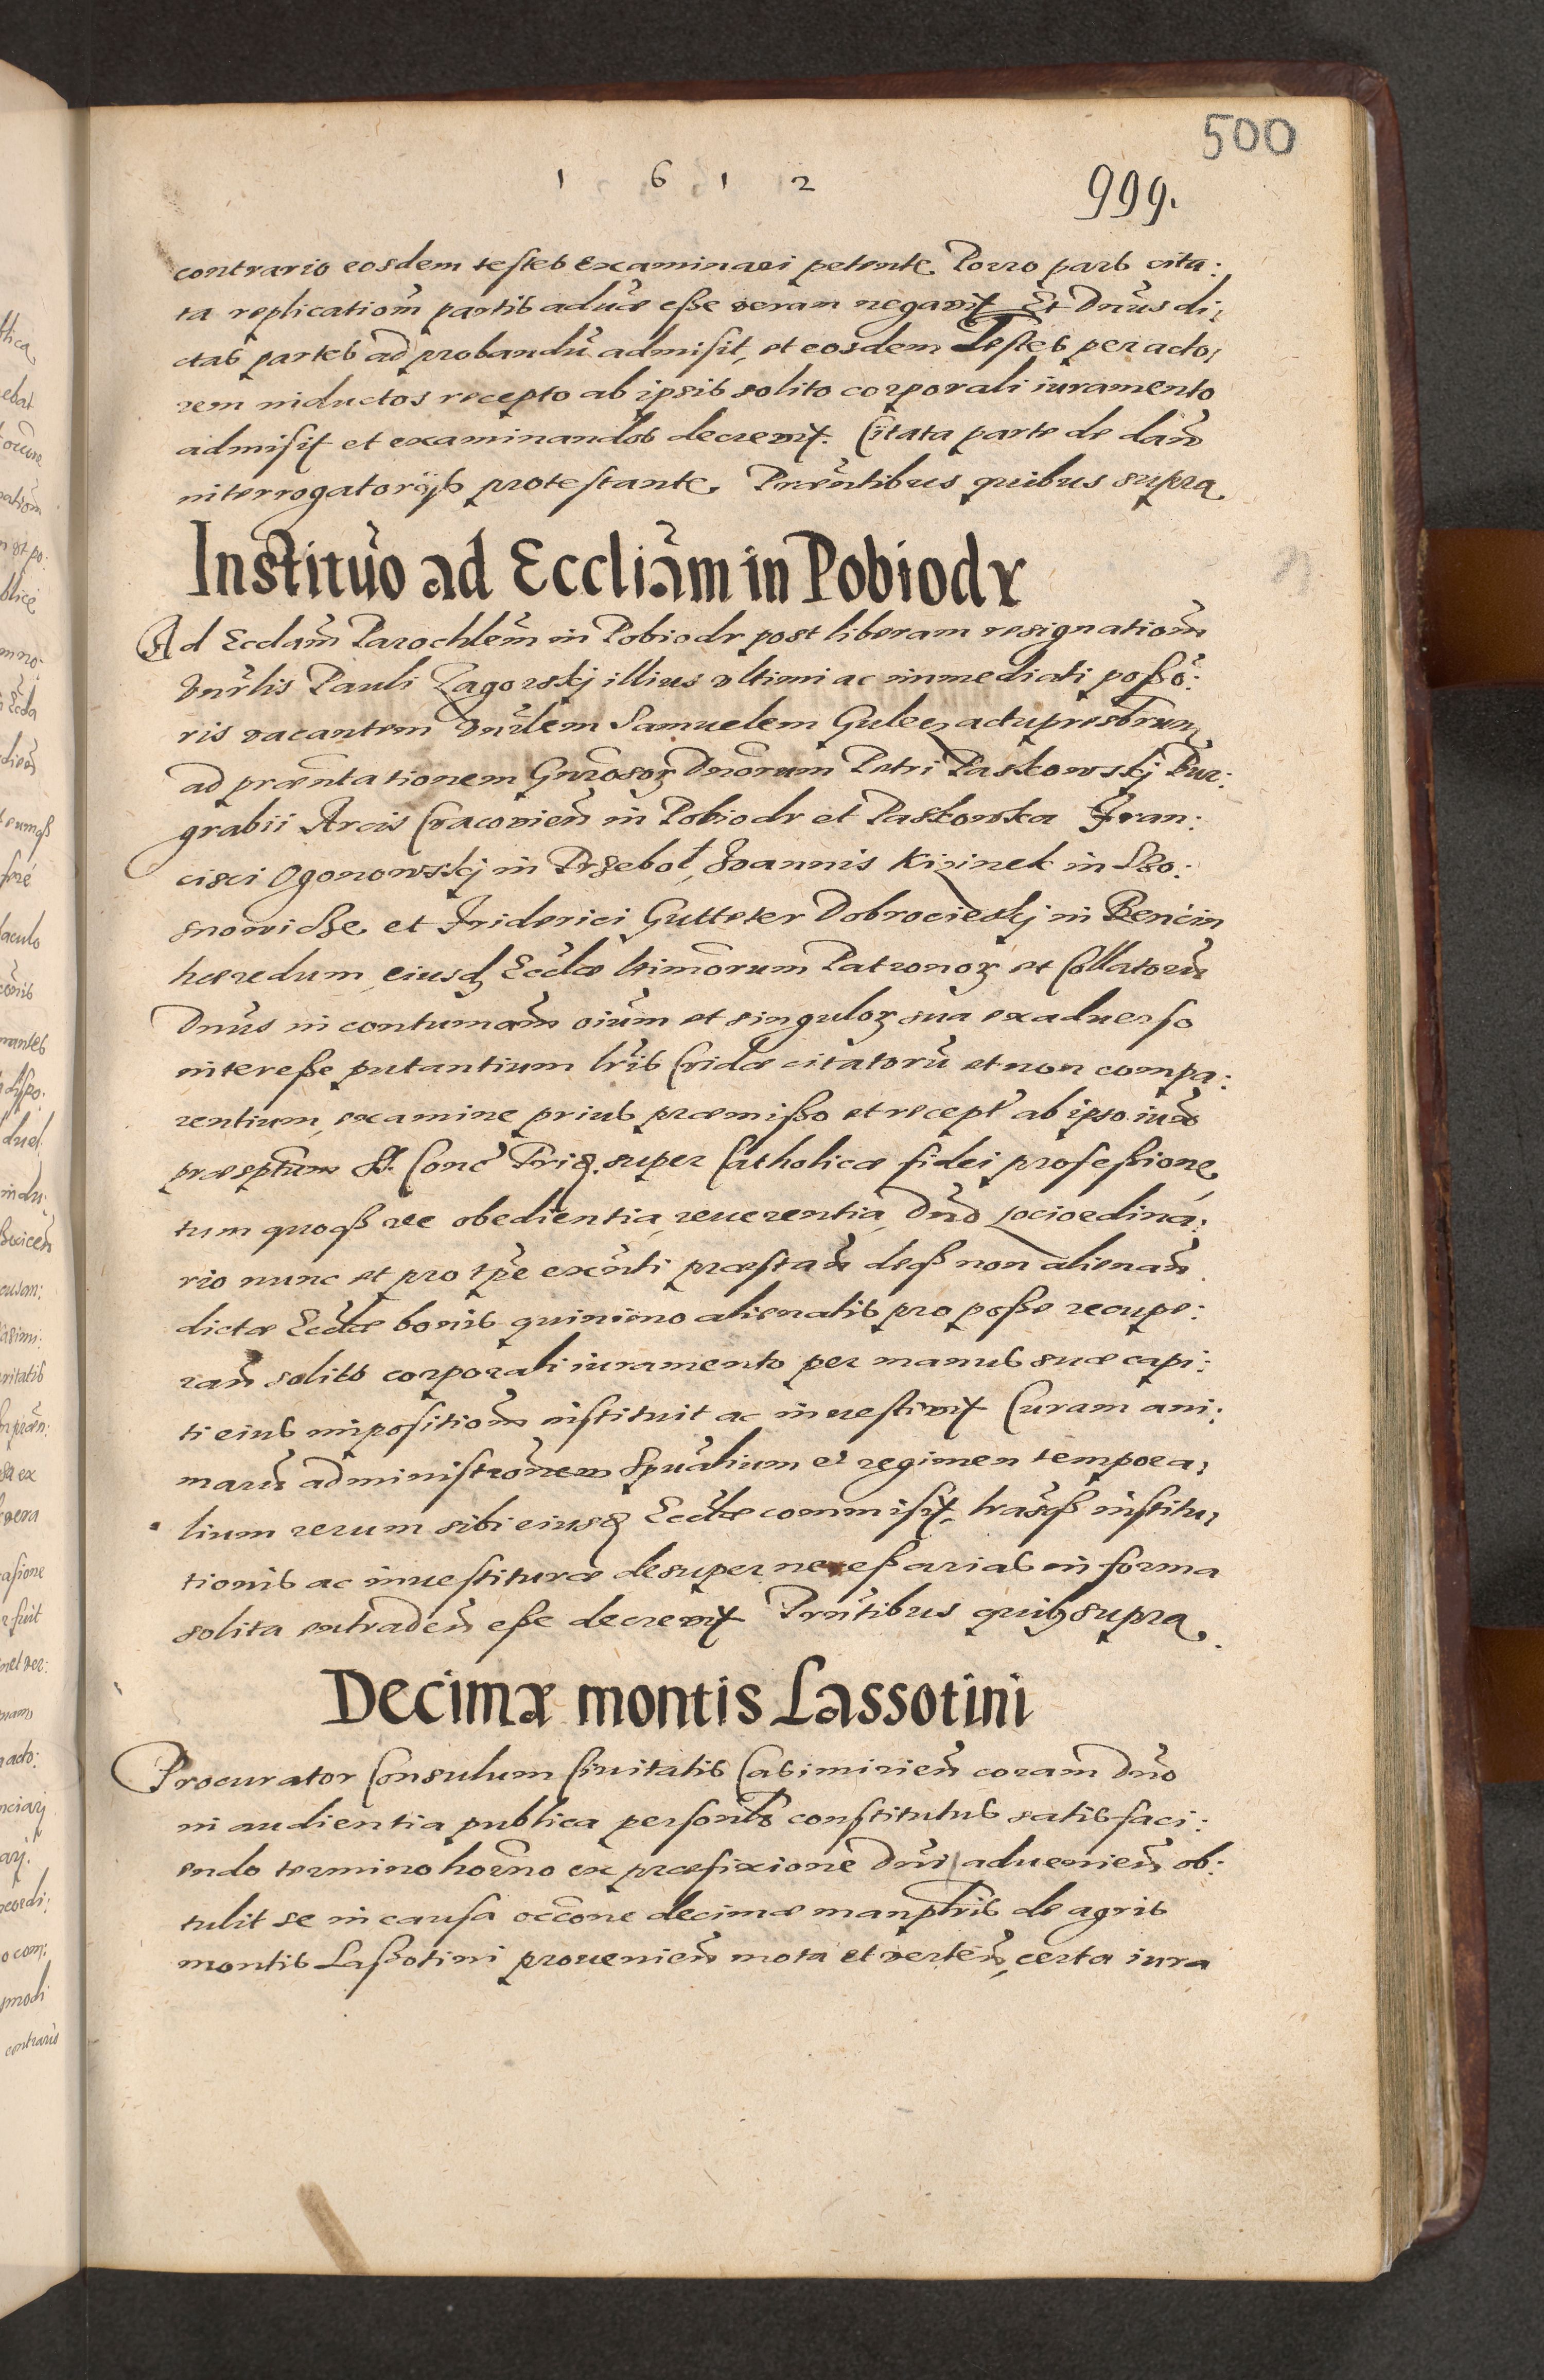 500
1 6 1 2
999.
contrario eosdem testes examinari petente. Porro pars cita:
ta replicationem partis aduersae esse veram negavit Et Dnus di:
ctas partes ad probandu admisit, et eosdem Testes per acto:
rem inductos recepto ab ipsis solito corporali iuramento
admisit et examinandos decrevit. Citata parte de dan
interrogatorijs protestante. Praentibus quibus supra
Institutio ad Eccliam in Pobiodr
Ad Ecclam Parochlem in Pobiodr post liberam resignationem
Vnrlis Pauli Zagorskj illius vltimi ac immediati posso:
ris vacantem Vnrlem Samuelem Gulec actu presbrum
ad praentationem Gnrosor Dnorum Petri Paskowskj Bur:
grabii Arcis Cracovien in Pobiodr et Paskowka Fran:
cisci Ogonowskj in Przebol, Joannis Kizinek in So:
snowisze et Friderici Gutteter Dobrocieskj in Bencin
haeredum eiusd Ecclae ltimorum Patronor et Collatoru
Dnus in contumam oium et singulor sua ex aduerso
interesse putantium lris Cridae citatoru et non compa:
rentium, examine prius praemisso et recept ab ipso iux
praesptum S. Conc Trid. super Catholicae fidei professione,
tum quoqs de obedientia reuerentia Dno loci ordina:
rio nunc et pro tpe exnti praestan deqs non alienan
dictae Ecclae bonis quinimo alienatis pro posse recupe:
ran solito corporali iuramento per manus suae capi:
ti eius impositionem instituit ac inuestivit Curam ani:
maru administronem Spualium et regimen tempora:
lium rerum sibi eiusd Ecclae commisit, lrasqs institu:
tionis ac inuestiturae desuper necessarias in forma
solita extraden esse decrevit Prntibus quibus supra.
Decimae montis Lassotini
Procurator Consulum Civitatis Casimirien coram Dno
in audientia publica personlr constitutus satisfaci:
endo termino horno ex praefixione Dni adueniem ob:
tulit se in causa occone decimae manplris de agris
montis Lassotini prouenien mota et verten, certa iura